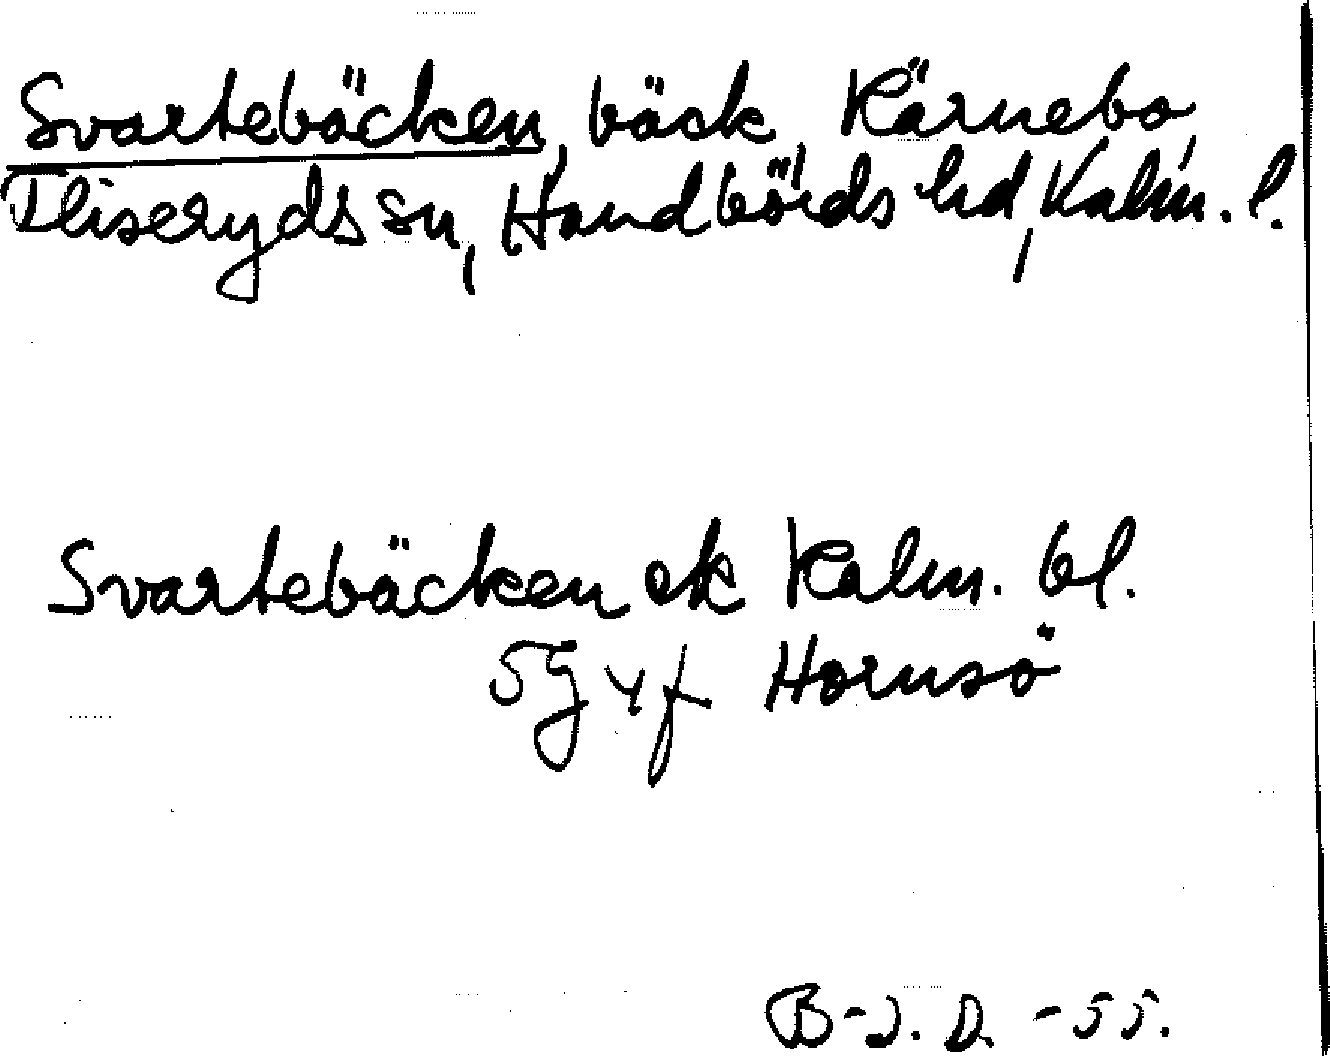 Svartebäcken, bäck, Kärnebo,
Fliseryds sn, Handbörds hd, Kalm. l.
Svartebäcken ek Kalm. bl.
5g yf Hornsö
B-J. D. -55.